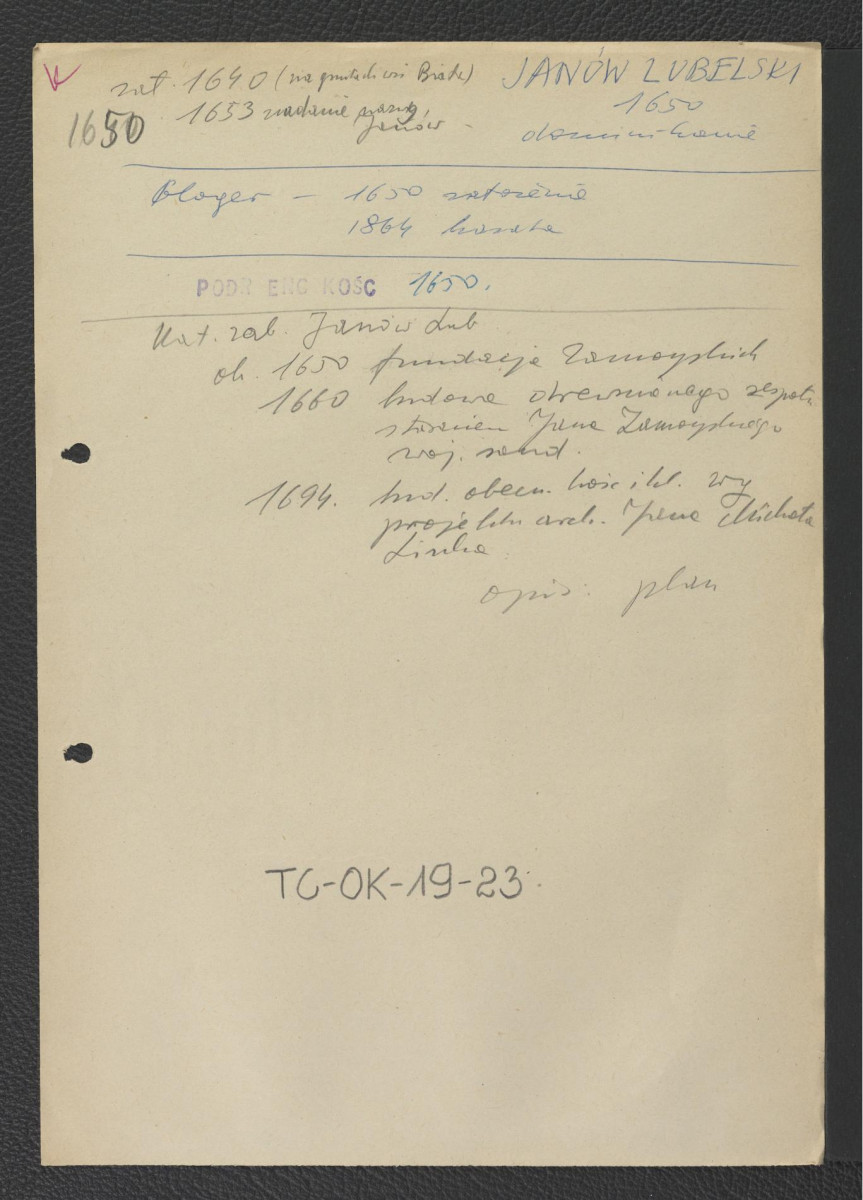 zał. 1640 (na gruntach wsi Biała)
JANÓW LUBELSKI
1650
1653 nadanie nazwy
Janów
1650
dominikanie
Gloger – 1650 założenie
1864 kasata
PODR ENC KOŚC 1650.
Kat. zab. Janów Lub
ok. 1650 fundacja Zamoyskich
1660 budowa drewnianego zespołu
staraniem Jana Zamoyskiego
woj. sand.
1694. bud. obecn. kośc i kl. wg
projektu arch. Jana Michała
Linka
opis: plan
TC-OK-19-23